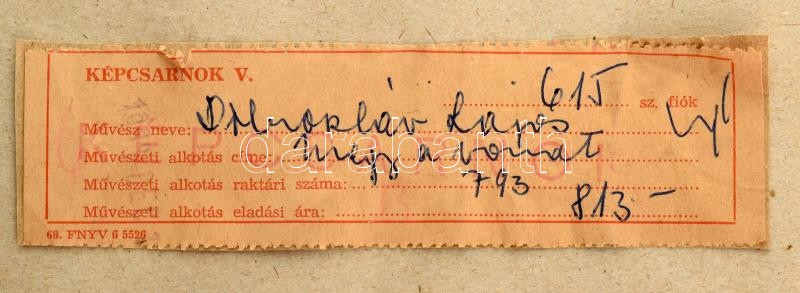 KÉPCSARNOK V.
615 sz. fiók
Művész neve: Lajos
Művészeti alkotás címe: megy a vonat
Művészeti alkotás raktári száma: 793
Művészeti alkotás eladási ára: 813.-
68. FNYV 6 5526
darabanth